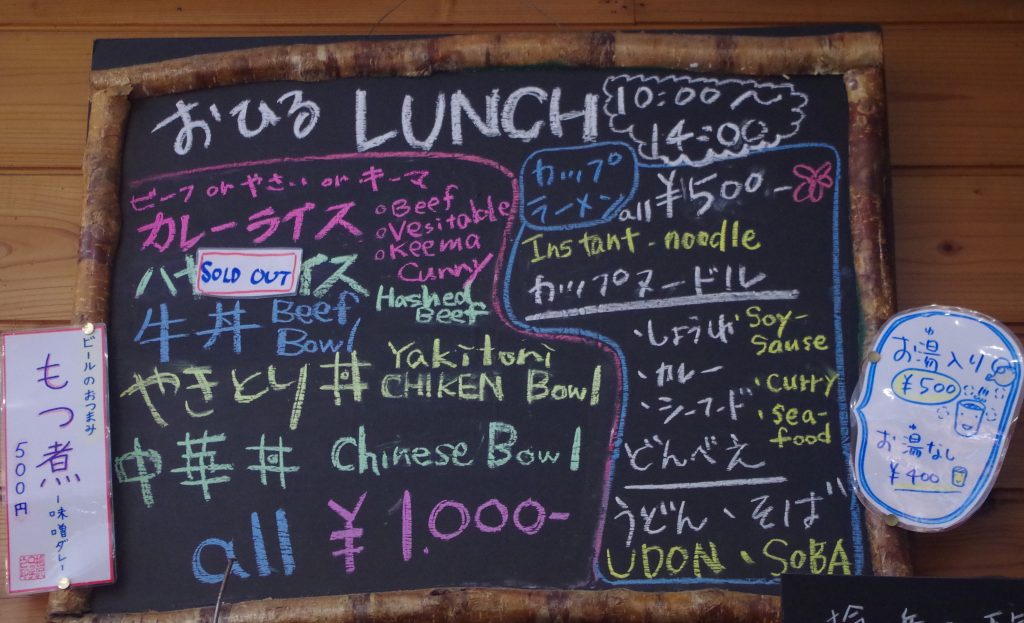 おひる LUNCH 10:00〜
14:00
ビーフ or やさい or キーマ
カレーライス
。Beef
。Vesitable
。Keema
Curry
ハヤ SOLD OUT イス
Hashed
Beef
牛丼 Beef
Bowl
やきとり丼 Yakitori
CHIKEN Bowl
中華丼 Chinese Bowl
all ¥1.000-
カップ
ラーメン
all ¥500-
Instant-noodle
カップヌードル
・しょうゆ Soy-
Sause
・カレー ・curry
・シーフード ・sea-
food
どんべえ
うどん、そば
UDON、SOBA
ビールのおつまみ
もつ煮
ー味噌ダレー
500円
お湯入り
¥500
お湯なし
¥400